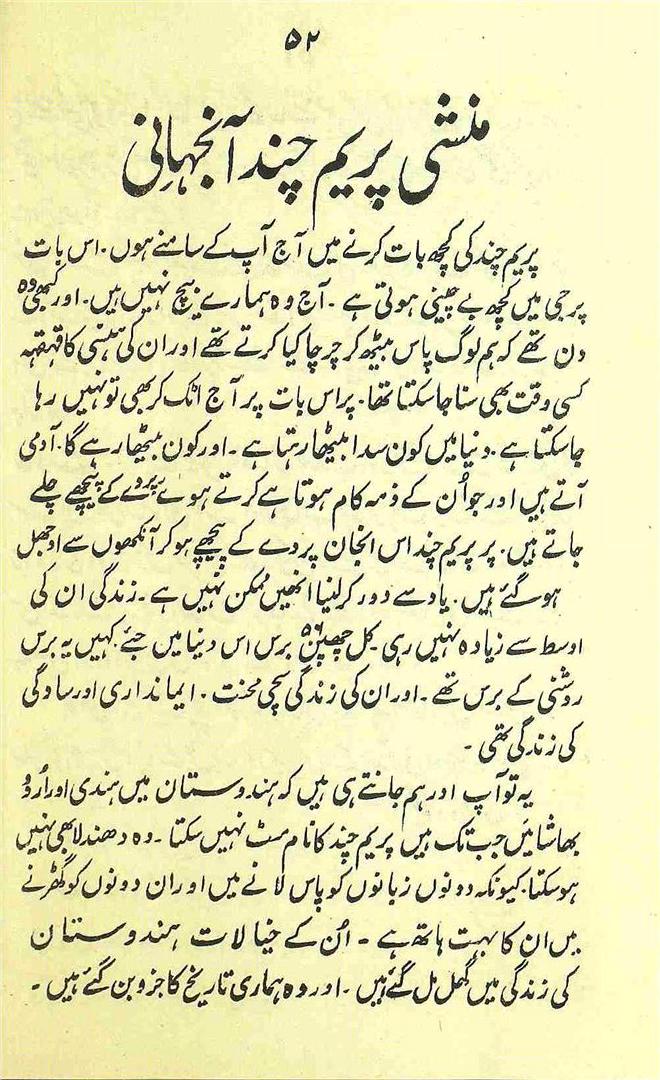 ۵۲
منشی پریم چند آنجہانی
پریم چند کی کچھ بات کرنے میں آج آپ کے سامنے ہوں. اس بات
پر جی میں کچھ بے چینی ہوتی ہے ۔ آج وہ ہمارے بیچ نہیں ہیں. اور کبھی وہ
دن تھے کہ ہم لوگ پاس بیٹھ کر چرچا کیا کرتے تھے اور ان کی ہنسی کا قہقہہ
کسی وقت بھی سنا جا سکتا تھا. پر اس بات پر آج اٹک کر بھی تو نہیں رہا
جا سکتا ہے. دنیا میں کون سدا بیٹھا رہتا ہے ۔ اور کون بیٹھا رہے گا. آدمی
آتے ہیں اور جو اُن کے ذمہ کام ہوتا ہے کرتے ہوے پردے کے پیچھے چلے
جاتے ہیں. پر پریم چند اس انجان پردے کے پیچھے ہو کر آنکھوں سے اوجھل
ہو گئے ہیں. یاد سے دور کر لینا انھیں ممکن نہیں ہے ۔ زندگی ان کی
اوسط سے زیادہ نہیں رہی کل چھپن ۵۶ برس اس دنیا میں جئے. کہیں یہ برس
روشنی کے برس تھے ۔ اور ان کی زندگی سچی محنت. ایمانداری اور سادگی
کی زندگی تھی ۔
یہ تو آپ اور ہم جانتے ہی ہیں کہ ہندوستان میں ہندی اور اُردو
بھاشائیں جب تک ہیں پریم چند کا نام مٹ نہیں سکتا ۔ وہ دھندلا بھی نہیں
ہو سکتا. کیونکہ دونوں زبانوں کو پاس لانے میں اور ان دونوں کو گھڑنے
میں ان کا بہت ہاتھ ہے ۔ اُن کے خیالات ہندوستان
کی زندگی میں گھل مل گئے ہیں ۔ اور وہ ہماری تاریخ کا جزو بن گئے ہیں ۔